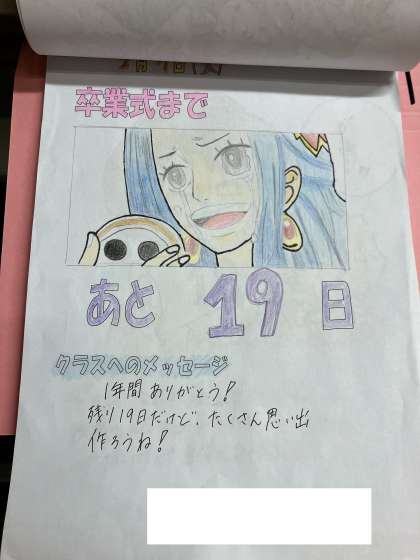 卒業式まで
あと 19 日
クラスへのメッセージ
1年間ありがとう!
残り19日だけど、たくさん思い出
作ろうね!